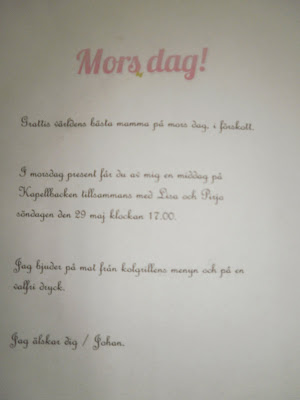 Mors dag!
Grattis världens bästa mamma på mors dag, i förskott.
I morsdag present får du av mig en middag på
Kapellbacken tillsammans med Lisa och Perja
söndagen den 29 maj klockan 17.00.
Jag bjuder på mat från kolgrillens menyn och på en
valfri dryck.
Jag älskar dig / Johan.